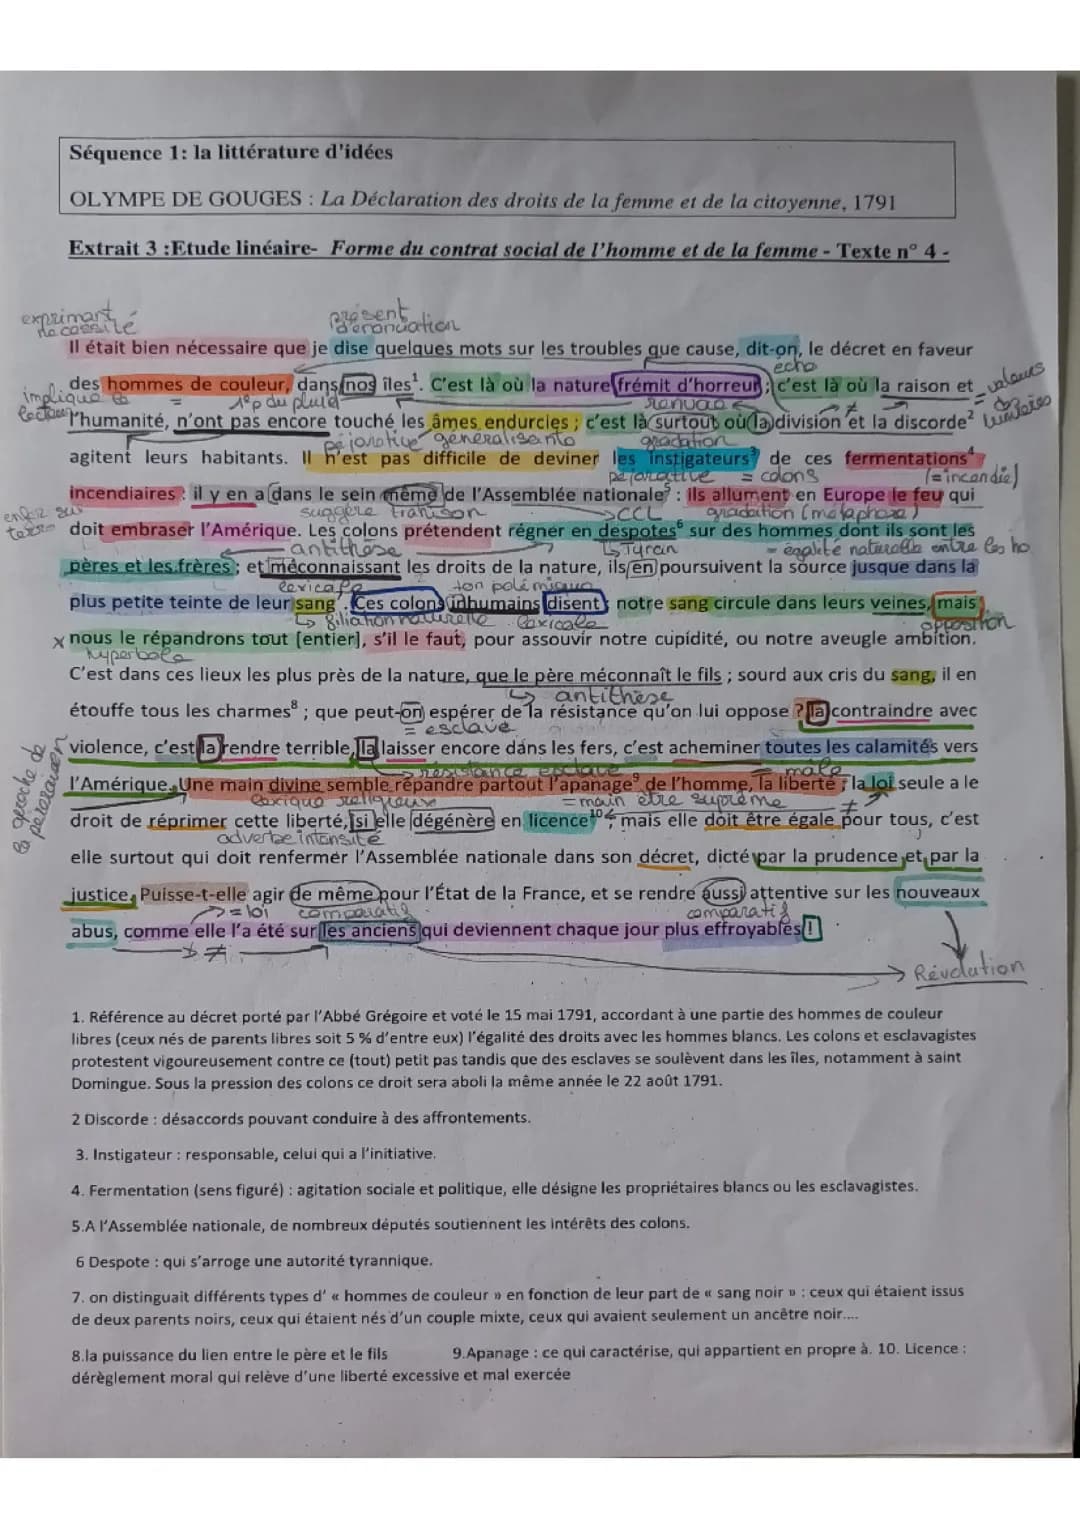 Séquence 1: la littérature d'idées
OLYMPE DE GOUGES : La Déclaration des droits de la femme et de la citoyenne, 1791
Extrait 3 :Etude linéaire- Forme du contrat social de l'homme et de la femme - Texte n° 4 -
exprimant nécessité
présent d'énonciation
Il était bien nécessaire que je dise quelques mots sur les troubles que cause, dit-on, le décret en faveur
écho
des hommes de couleur, dans nos îles¹. C'est là où la nature frémit d'horreur ; c'est là où la raison et
= valeurs des lumières
implique le lecteur
= 1e p du pluriel
renvoie
l'humanité, n'ont pas encore touché les âmes endurcies ; c'est là surtout où la division et la discorde²
péjorative généralisante
gradation
agitent leurs habitants. Il n'est pas difficile de deviner les instigateurs³ de ces fermentations⁴
péjorative = colons
(= incendie)
incendiaires : il y en a dans le sein même de l'Assemblée nationale⁵ : ils allument en Europe le feu qui
suggère trahison
CCL
gradation (métaphore)
doit embraser l'Amérique. Les colons prétendent régner en despotes⁶ sur des hommes dont ils sont les
antithèse
Tyran
= égalité naturelle entre les ho
pères et les frères ; et méconnaissant les droits de la nature, ils en poursuivent la source jusque dans la
lexicale
ton polémique
plus petite teinte de leur sang⁷. Ces colons inhumains disent : notre sang circule dans leurs veines, mais
filiation naturelle lexicale
opposition
x nous le répandrons tout [entier], s'il le faut, pour assouvir notre cupidité, ou notre aveugle ambition.
hyperbole
C'est dans ces lieux les plus près de la nature, que le père méconnaît le fils ; sourd aux cris du sang, il en
antithèse
étouffe tous les charmes⁸ ; que peut-on espérer de la résistance qu'on lui oppose ? la contraindre avec
= esclave
violence, c'est la rendre terrible, la laisser encore dans les fers, c'est acheminer toutes les calamités vers
résistance esclave
l'Amérique. Une main divine semble répandre partout l'apanage⁹ de l'homme, la liberté ; la loi seule a le
lexique religieux
= main être suprême
droit de réprimer cette liberté, si elle dégénère en licence¹⁰ ; mais elle doit être égale pour tous, c'est
adverbe intensité
elle surtout qui doit renfermer l'Assemblée nationale dans son décret, dicté par la prudence et par la
justice. Puisse-t-elle agir de même pour l'État de la France, et se rendre aussi attentive sur les nouveaux
= loi
comparatif
comparatif
abus, comme elle l'a été sur les anciens qui deviennent chaque jour plus effroyables !
≠
Révolution
1. Référence au décret porté par l'Abbé Grégoire et voté le 15 mai 1791, accordant à une partie des hommes de couleur
libres (ceux nés de parents libres soit 5 % d'entre eux) l'égalité des droits avec les hommes blancs. Les colons et esclavagistes
protestent vigoureusement contre ce (tout) petit pas tandis que des esclaves se soulèvent dans les îles, notamment à saint
Domingue. Sous la pression des colons ce droit sera aboli la même année le 22 août 1791.
2 Discorde : désaccords pouvant conduire à des affrontements.
3. Instigateur : responsable, celui qui a l'initiative.
4. Fermentation (sens figuré) : agitation sociale et politique, elle désigne les propriétaires blancs ou les esclavagistes.
5.A l'Assemblée nationale, de nombreux députés soutiennent les intérêts des colons.
6 Despote : qui s'arroge une autorité tyrannique.
7. on distinguait différents types d' « hommes de couleur » en fonction de leur part de « sang noir » : ceux qui étaient issus
de deux parents noirs, ceux qui étaient nés d'un couple mixte, ceux qui avaient seulement un ancêtre noir....
8.la puissance du lien entre le père et le fils 9.Apanage : ce qui caractérise, qui appartient en propre à. 10. Licence :
dérèglement moral qui relève d'une liberté excessive et mal exercée